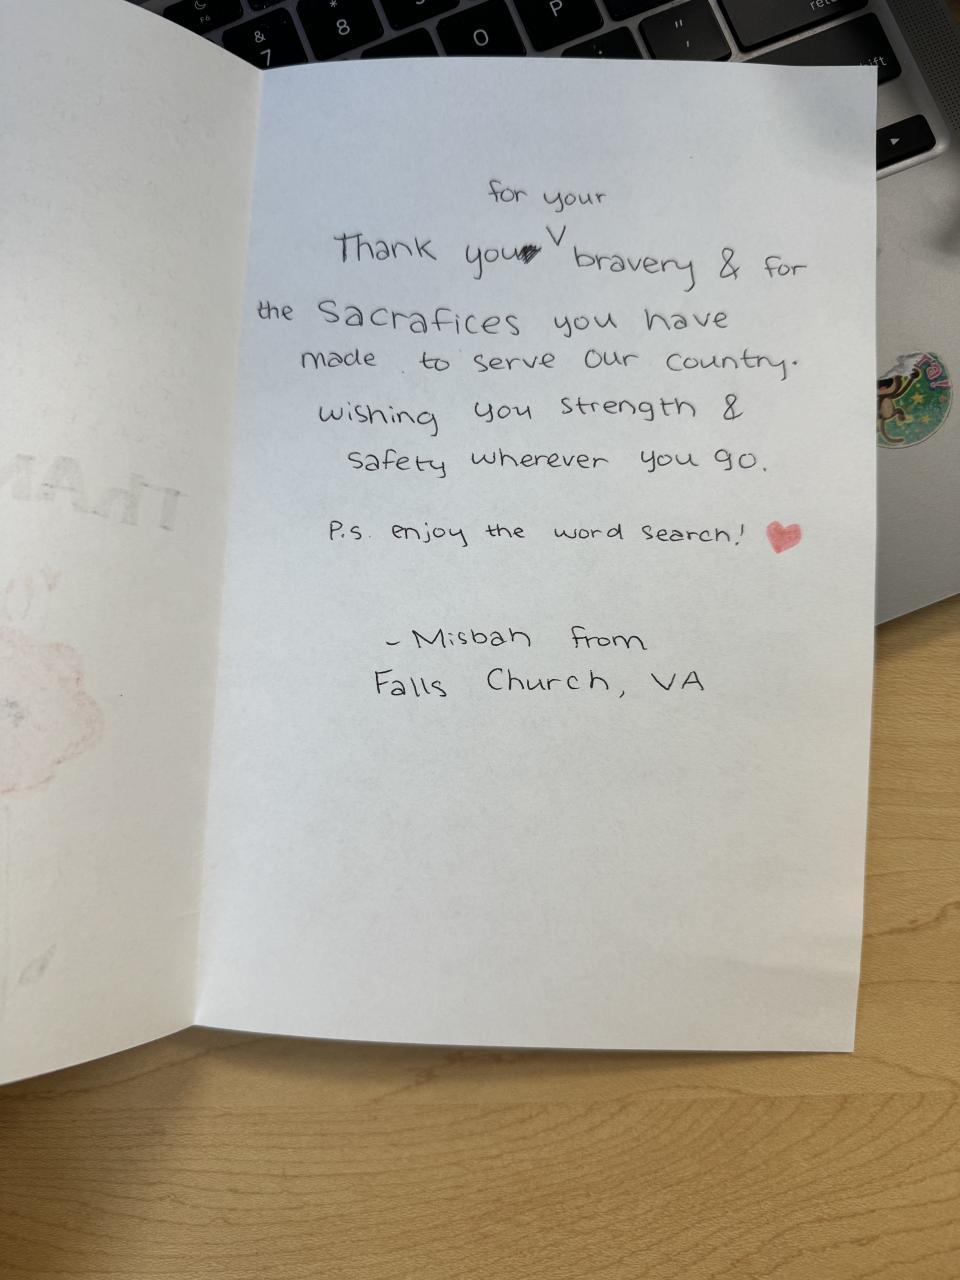 F6
& 7
* 8
O
P
" '
return
shift
for your
Thank you V bravery & for
the Sacrafices you have
made to serve our country.
wishing you strength &
safety wherever you go.
P.s. enjoy the word search!
- Misbah from
Falls Church, VA
THAN
YO
ra!